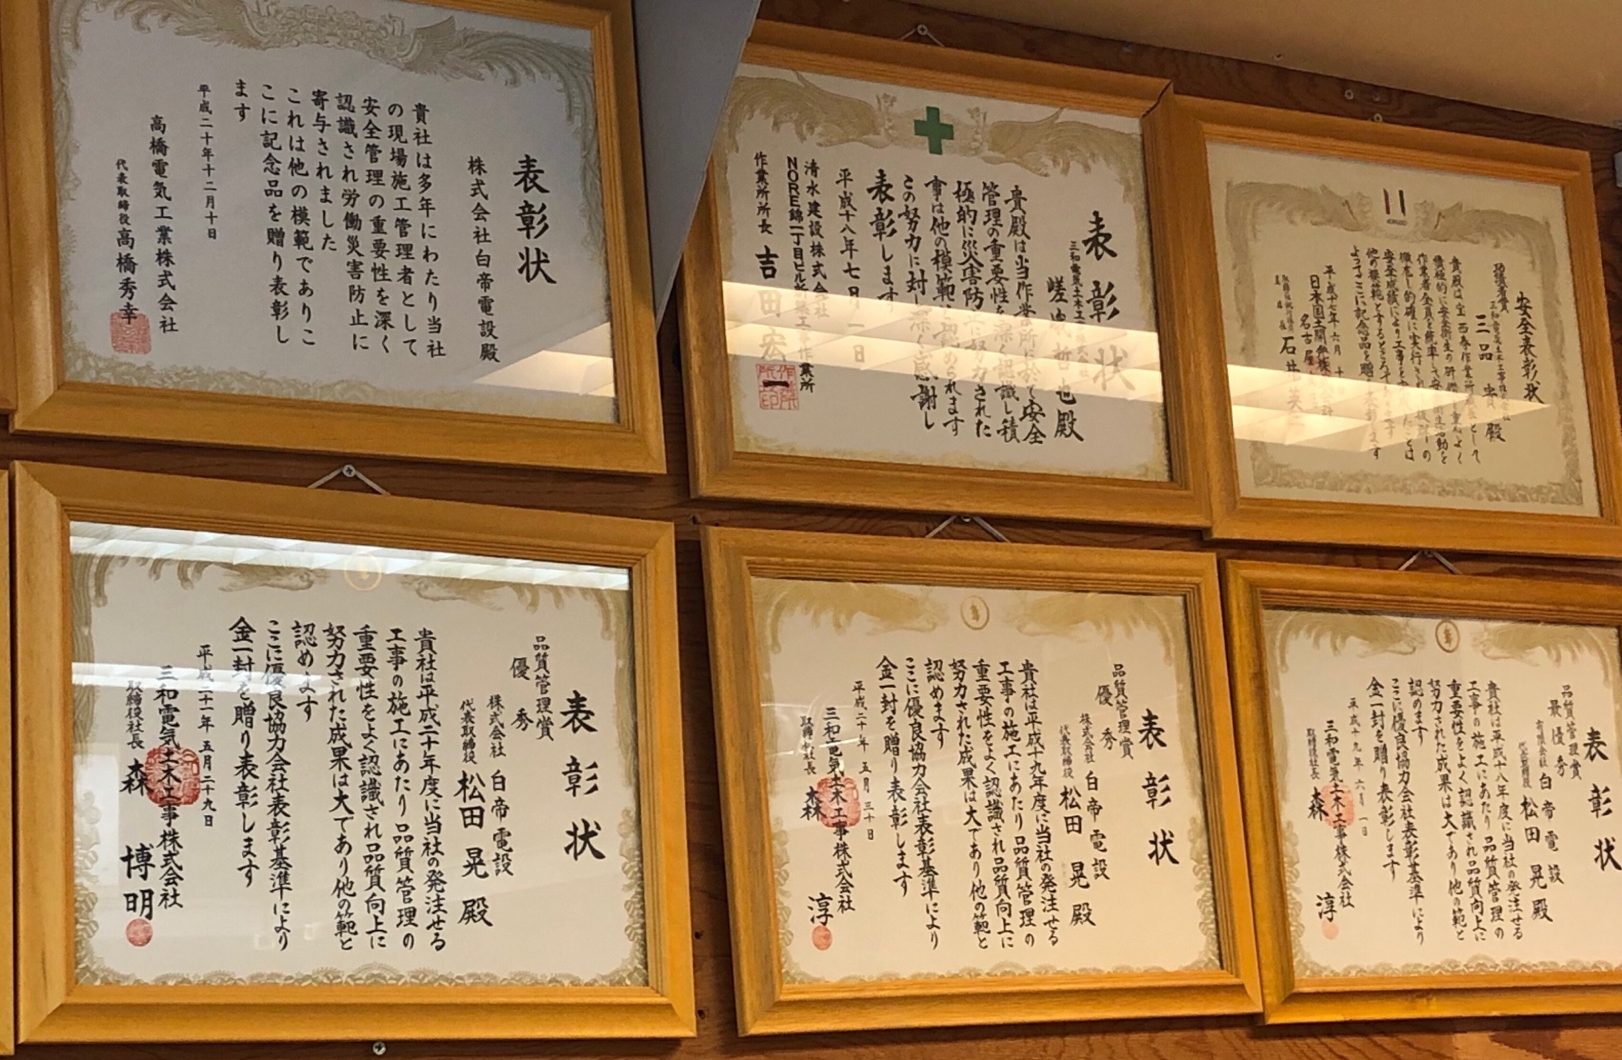 表彰状
株式会社白帝電設殿
貴社は多年にわたり当社
の現場施工管理者として
安全管理の重要性を深く
認識され労働災害防止に
寄与されました
これは他の模範でありこ
こに記念品を贈り表彰し
ます
平成二十年十二月十日
高橋電気工業株式会社
代表取締役高橋秀幸
表彰状
殿
貴殿は当作業所において安全
管理の重要性を深く認識し積
極的に災害防止に努力された
事は他の模範と認められます
この努力に対し深く感謝し
表彰します
平成十八年七月一日
清水建設株式会社
NORE錦一丁目ビル
作業所所長 吉田宏一
安全表彰状
殿
平成十七年六月
日本国土開発株式会社
名古屋
表彰状
品質管理賞
優秀
株式会社 白帝電設
代表取締役 松田 晃 殿
貴社は平成二十年度に当社の発注せる
工事の施工にあたり品質管理の
重要性をよく認識され品質向上に
努力された成果は大であり他の範と
認めます
ここに優良協力会社表彰基準により
金一封を贈り表彰します
平成二十一年 五月二十九日
三和電気土木工事株式会社
取締役社長 森 博明
表彰状
品質管理賞
優秀
株式会社 白帝電設
代表取締役 松田 晃 殿
貴社は平成十九年度に当社の発注せる
工事の施工にあたり品質管理の
重要性をよく認識され品質向上に
努力された成果は大であり他の範と
認めます
ここに優良協力会社表彰基準により
金一封を贈り表彰します
平成二十年 五月三十日
三和電気土木工事株式会社
取締役社長 森 淳
表彰状
品質管理賞
最優秀
有限会社 白帝電設
代表取締役 松田 晃 殿
貴社は平成十八年度に当社の発注せる
工事の施工にあたり品質管理の
重要性をよく認識され品質向上に
努力された成果は大であり他の範と
認めます
ここに優良協力会社表彰基準により
金一封を贈り表彰します
平成十九年 六月一日
三和電気土木工事株式会社
取締役社長 森 淳